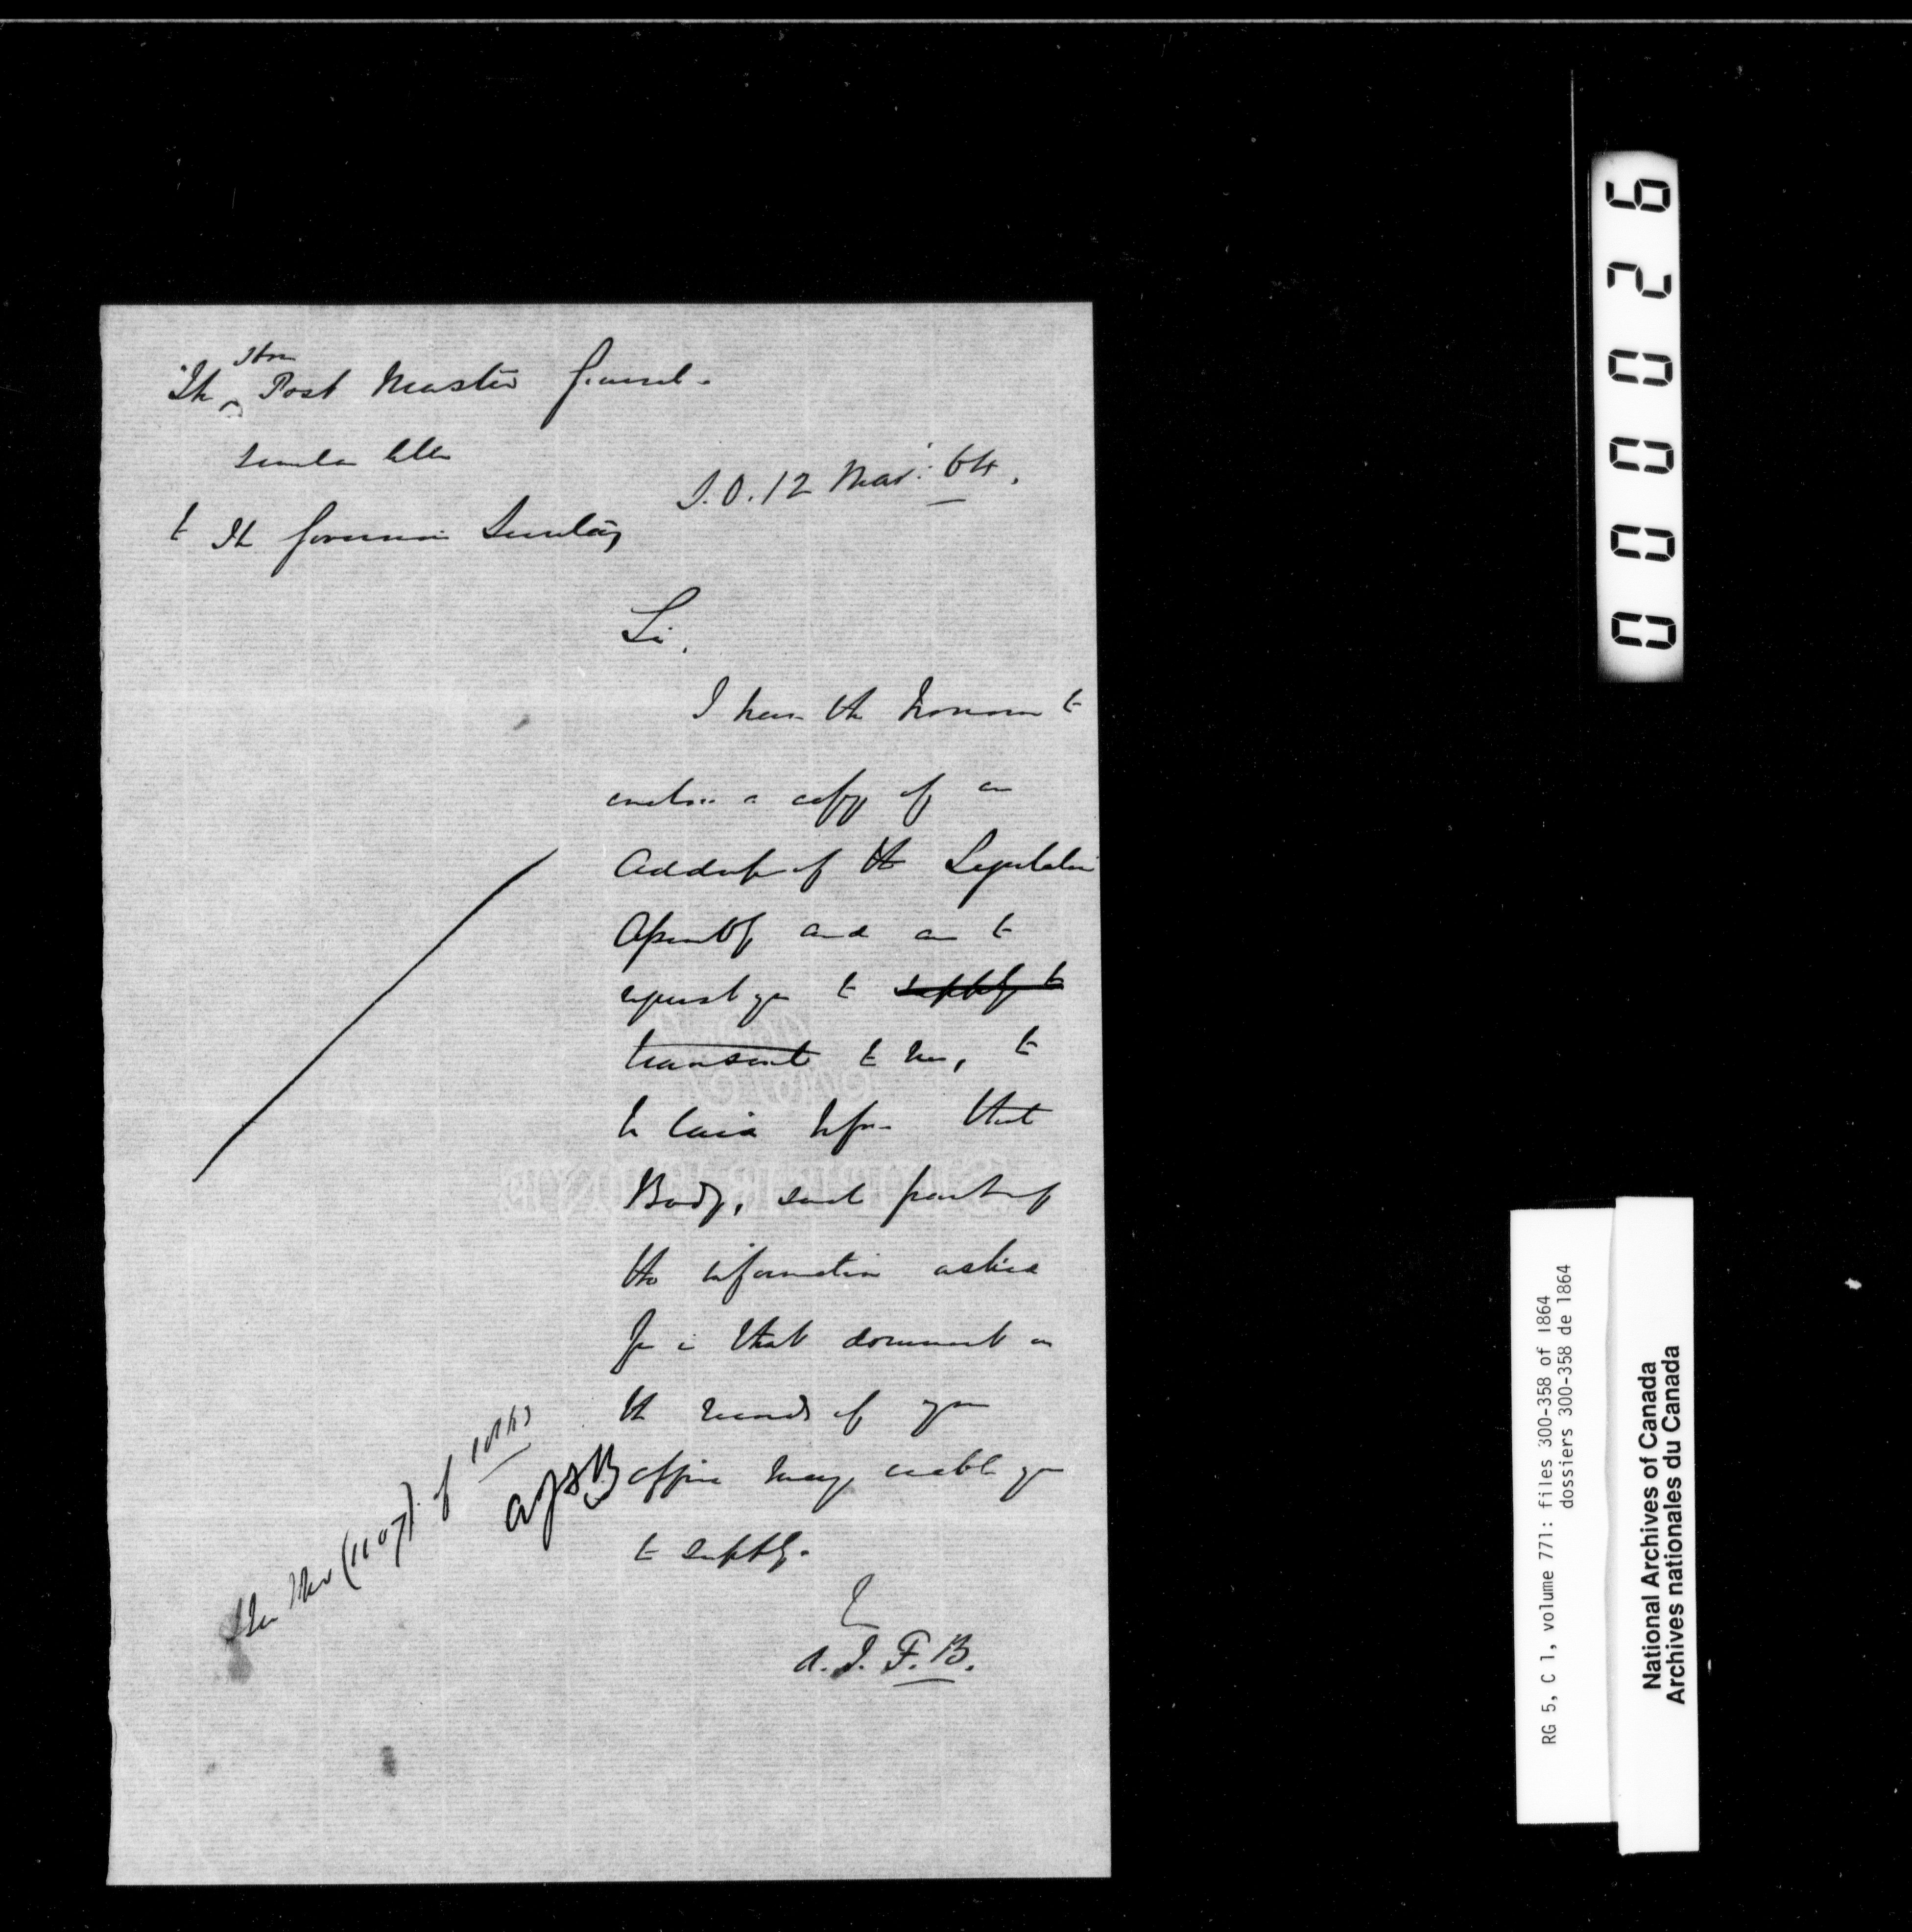 The Hon Post Master General.
Similar letter
to The Governor's Secretary
S.O. 12 Mar: 64.
Sir,
I have the honour to
enclose a copy of an
Address of the Legislative
Assembly and am to
request you to supply to
transmit to me, to
be laid before that
Body, such part of
the information asked
for in that document as
the records of your
office may enable you
to supply.
A. I. F. B.
(1107) of
000026
RG 5, C 1, volume 771: files 300-358 of 1864
dossiers 300-358 de 1864
National Archives of Canada
Archives nationales du Canada